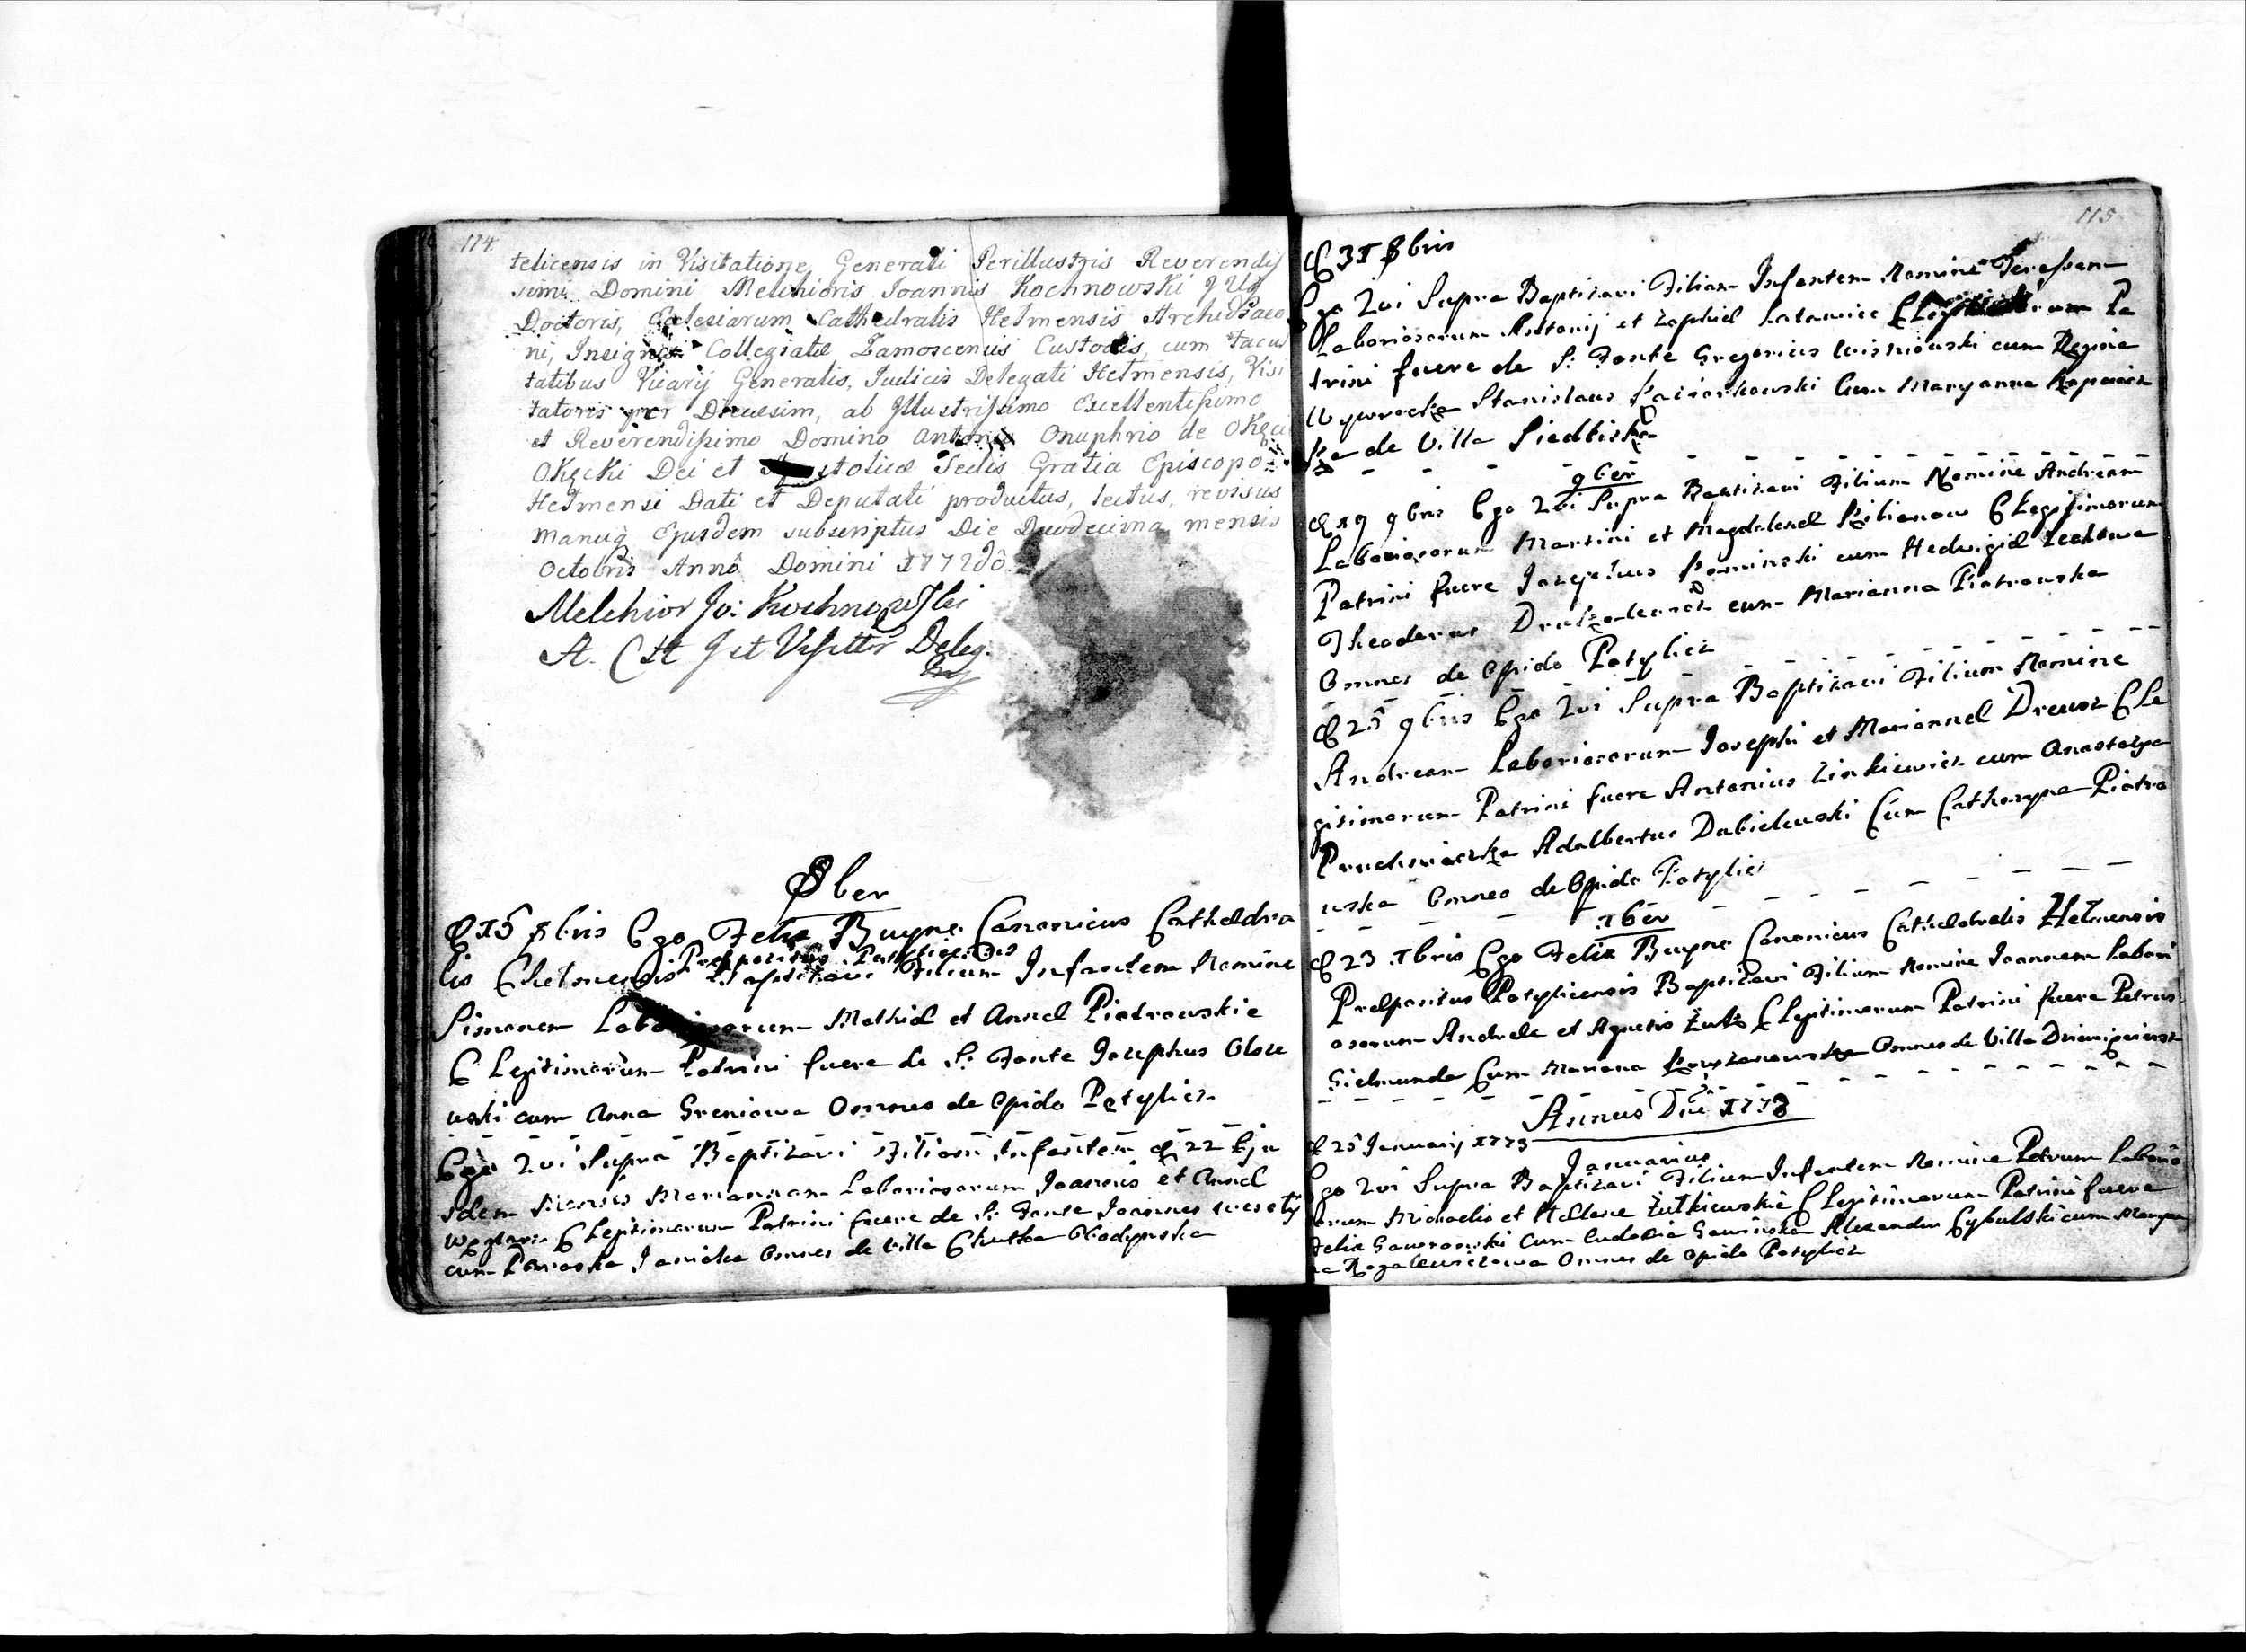 114.
telicensis in Visitatione Generali Perillustris Reverendis
simi Domini Melchioris Joannis Kochnowski
Doctoris, Ecclesiarum Cathedralis Helmensis Archidiaco
ni, Insignis Collegiatæ Zamoscensis Custodis, cum Facul
tatibus Vicarij Generalis, Judicis Delegati Helmensis, Visi
tatoris per Diœcesim, ab Illustrissimo Excellentissimo
et Reverendissimo Domino Antonio Onuphrio de Okęcie
Okęcki Dei et stolicæ Sedis Gratia Episcopo
Helmensi Dati et Deputati productus, lectus, revisus
manuq Ejusdem subscriptus Die Duodecima mensis
Octobris Annô Domini 1772dô.
Melchior Jo: Kochnowski
A. C H J et Visittor Deleg.
8ber
D 15 8bris Ego Felix Buyno Canonicus Cathedra
Præpositus Patylicensis
lis Chelmensis Baptizavi Filium Infantem Nomine
Simonem Laboriosorum Mathiæ et Annæ Piotrowskie
C Legitimorum Patrini fuere de S. Fonte Josephus Olsze
wski cum Anna Greniowa Omnes de Opido Potylicz
Ego Qui Supra Baptizavi Filiam Infantem D 22 Eju
sdem Mensis Mariannam Laboriosorum Joannis et Annæ
C Legitimorum Patrini fuere de S. Fonte Joannes Wesoły
cum Janicka Omnes de Villa Chutka Obodynska
115
D 31 8bris
Ego Qui Supra Baptizavi Filiam Infantem Nomine Teressam
Laboriosorum Antonij et Zophiæ C Legitimorum Pa
trini fuere de S. Fonte Gregorius Wisniowski cum Regina
Wywrocka Stanislaus Paciorkowski Cum Maryanna
de Villa Siedliska
9ber
D 19 9bris Ego Qui Supra Baptizavi Filium Nomine Andream
Laboriosorum Martini et Magdalenæ Kilianow C Legitimorum
Patrini fuere Josephus Pominski cum Hedwigiæ
Theodorus cum Marianna Piotrowska
Omnes de Opido Potylicz
D 25 9bris Ego Qui Supra Baptizavi Filium Nomine
Andream Laboriosorum Josephi et Mariannæ Drewsz C Le
gitimorum Patrini fuere Antonius Zinkiewicz cum Anastazya
Pruchniacka Adalbertus Dabielewski Cum Catharyna Piotro
wska Omnes de Opido Potylicz
Xber
D 23 Xbris Ego Felix Buyno Canonicus Cathedralis Helmensis
Præpositus Potylicensis Baptizavi Filium Nomine Joannem Labori
osorum Andreæ et Agnetis Żuk C Legitimorum Patrini fuere Petrus
Gielmunda Cum Mariana Omnes de Villa
Annus Dni 1773
D 25 Januarij 1773
Januarius
Ego Qui Supra Baptizavi Filium Infantem Nomine Petrum Laborio
sorum Michaelis et Hellene Żułkiewskie C Legitimorum Patrini fuere
Felix Gaworowski Cum Ludovia Gawinska Alexander Cybulski cum Maryan
na Rogalewiczowa Omnes de Opido Potylicz